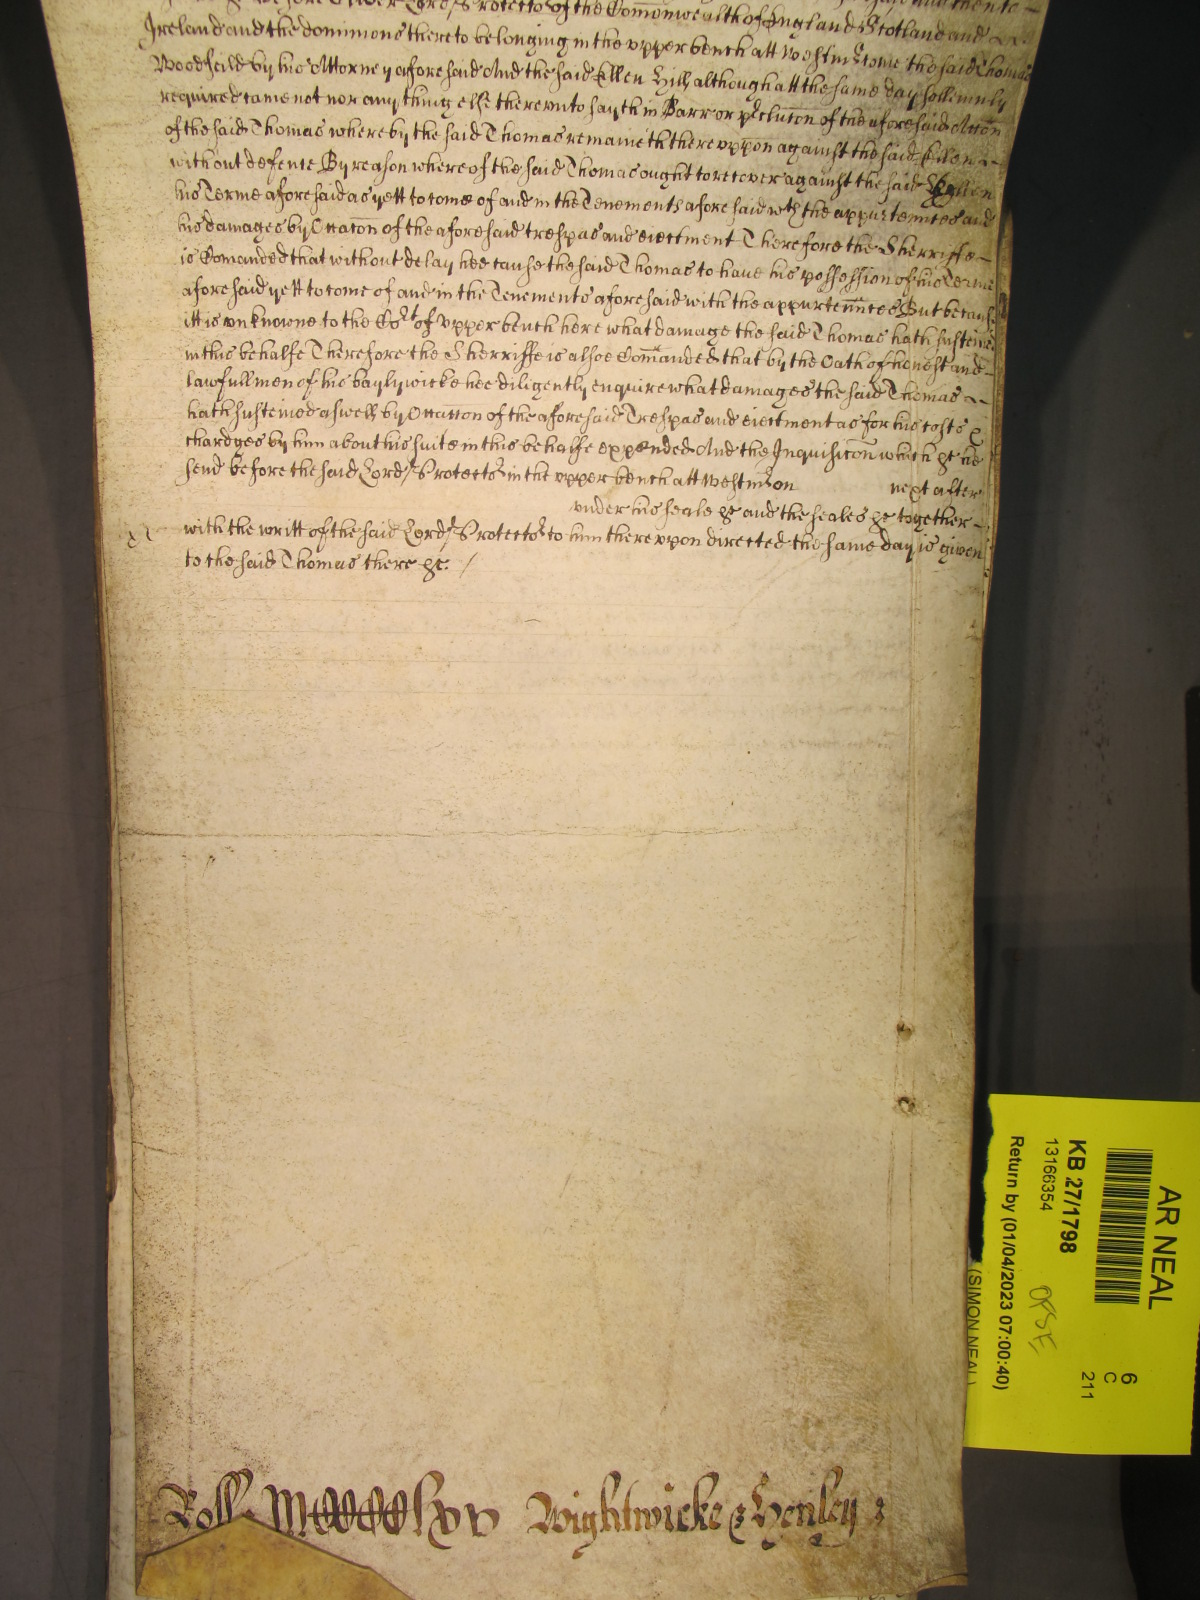 before Oliver Lord Protector of the Comonwealth of England Scotland and
Ireland and the dominions thereto belonging in the upper bench att Westmr come the said Thomas
Woodfeild by his Attorney aforesaid And the said Ellen Hill although att the same day sollemnly
required came not nor any thing else thereunto sayth in Barr or pclucon of the aforesaid Accon
of the said Thomas whereby the said Thomas remaineth thereuppon against the said Ellen
without defence By reason whereof the said Thomas ought to recover against the said Ellen
his Terme aforesaid as yett to come of and in the Tenements aforesaid wth the appurtennces and
his damages by Occacon of the aforesaid trespas and eiectment Therefore the Sherriffe
is Comanded that without delay hee cause the said Thomas to have his possession of his Terme
aforesaid yett to come of and in the Tenements aforesaid with the appurtennces But because
itt is unknowne to the Cort of upper bench here what damage the said Thomas hath susteined
in this behalfe Therefore the Sherriffe is alsoe Comanded that by the Oath of honest and
lawfull men of his baylywicke hee diligently enquire what damages the said Thomas
hath susteined aswell by Occacon of the aforesaid Trespas and eiectment as for his costs &
chardges by him about his suite in this behalfe expended And the Inquisicon which &c he
send before the said Lord Protector in the upper bench att Westmr on next after
under his seale &c and the seales &c together
with the writt of the said Lord Protector to him thereupon directed the same day is given
to the said Thomas there &c.
Roll Mccccclxv Wightwicke & Henley
AR NEAL
KB 27/1798
13166354
Return by (01/04/2023 07:00:40)
(SIMON NEAL)
6
C
211